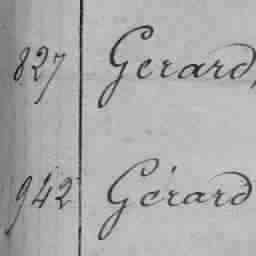 827 Gerard,
942 Gérard